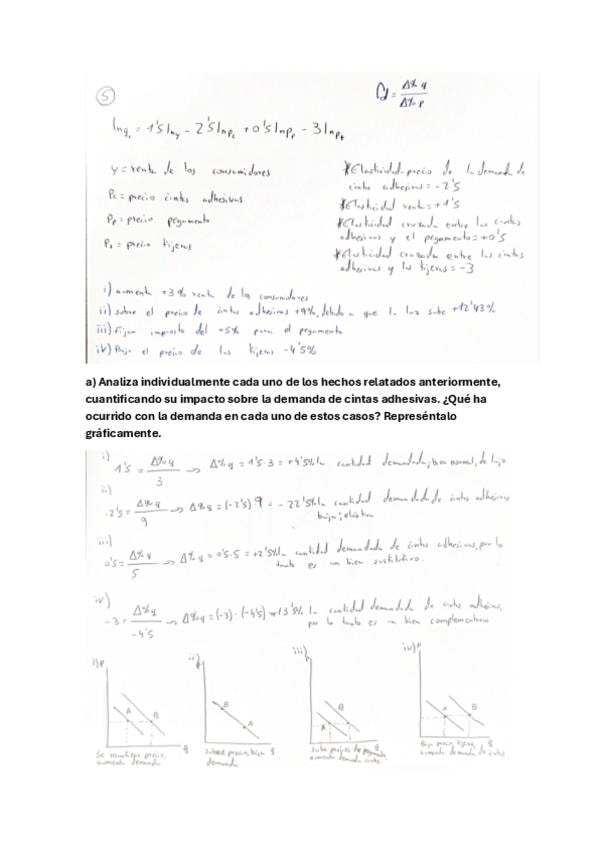 5
η_d = Δ%q / Δ%p
ln q_c = 1'5 ln y - 2'5 ln p_c + 0'5 ln p_p - 3 ln p_t
y = renta de los consumidores
Pc = precio cintas adhesivas
Pp = precio pegamento
Pt = precio tijeras
*Elasticidad-precio de la demanda de
cintas adhesivas = -2'5
*Elasticidad renta = +1'5
*Elasticidad cruzada entre las cintas
adhesivas y el pegamento = +0'5
*Elasticidad cruzada entre las cintas
adhesivas y las tijeras = -3
i) aumenta +3% renta de los consumidores
ii) sube el precio de cintas adhesivas +9%, debido a que la luz sube +12'43%
iii) Fijan impuesto del +5% para el pegamento
iv) Baja el precio de las tijeras -4'5%
a) Analiza individualmente cada uno de los hechos relatados anteriormente,
cuantificando su impacto sobre la demanda de cintas adhesivas. ¿Qué ha
ocurrido con la demanda en cada uno de estos casos? Represéntalo
gráficamente.
i)
1'5 = Δ%q / 3 → Δ%q = 1'5·3 = +4'5% la cantidad demandada; bien normal, de lujo
ii)
-2'5 = Δ%q / 9 → Δ%q = (-2'5) 9 = -22'5% la cantidad demandada de cintas adhesivas
baja; elástica
iii)
0'5 = Δ%q / 5 → Δ%q = 0'5·5 = +2'5% la cantidad demandada de cintas adhesivas, por lo
tanto es un bien sustitutivo.
iv)
-3 = Δ%q / -4'5 → Δ%q = (-3)·(-4'5) = +13'5% la cantidad demandada de cintas adhesivas,
por lo tanto es un bien complementario
i) P
A
B
q
Se mantiene precio,
aumenta demanda
ii)
B
A
q
Sube precio, baja
demanda
iii)
A
B
Sube precio de pegamento,
aumenta demanda cintas
iv) P
A
B
q
Baja precio tijeras,
aumenta demanda de cintas